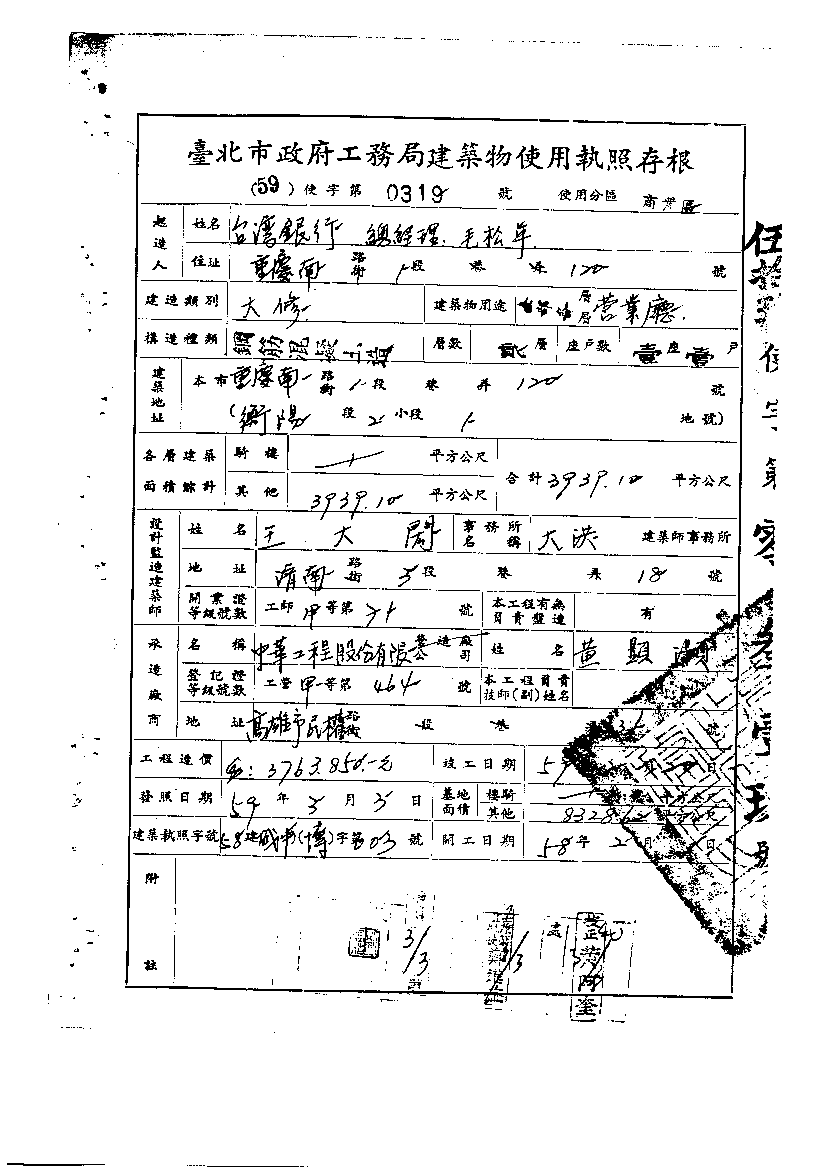 臺北市政府工務局建築物使用執照存根
(59)使字第 0319 號 使用分區 商業區
起造人 姓名 台湾銀行 總經理 毛松年
住址 重慶南 路街 1 段 巷 弄 120 號
建造類別 大修 建築物用途 層層 营業廳
構造種類 鋼筋混凝土造 層數 貳層 座戶數 壹座壹戶
建築地址 本市重慶南 路街 1 段 巷 弄 120 號
(衡陽 段 2 小段 1 地號)
各層建築面積餘計 騎樓 平方公尺 合計 3939.10 平方公尺
其他 3939.10 平方公尺
設計監造建築師 姓名 王大閎 事務所名稱 大洪 建築師事務所
地址 濟南 路街 3 段 巷 弄 18 號
開業證等級號數 工師 甲 等第 號 本工程有無負責監造 有
承造廠商 名稱 中華工程股份有限 姓名 黃顯
登記證等級號數 工營 甲 等第 464 號 本工程負責技師(副)姓名
地址 高雄市民權 路街 段 巷 號
工程造價 3763.850.-元 竣工日期 59
發照日期 59 年 3 月 3 日 基地面積 騎樓 平方公尺
其他 平方公尺
建築執照字號 58建 (博)字第03號 開工日期 58 年 2 月 日
附註
3/3
3/3
使字第零